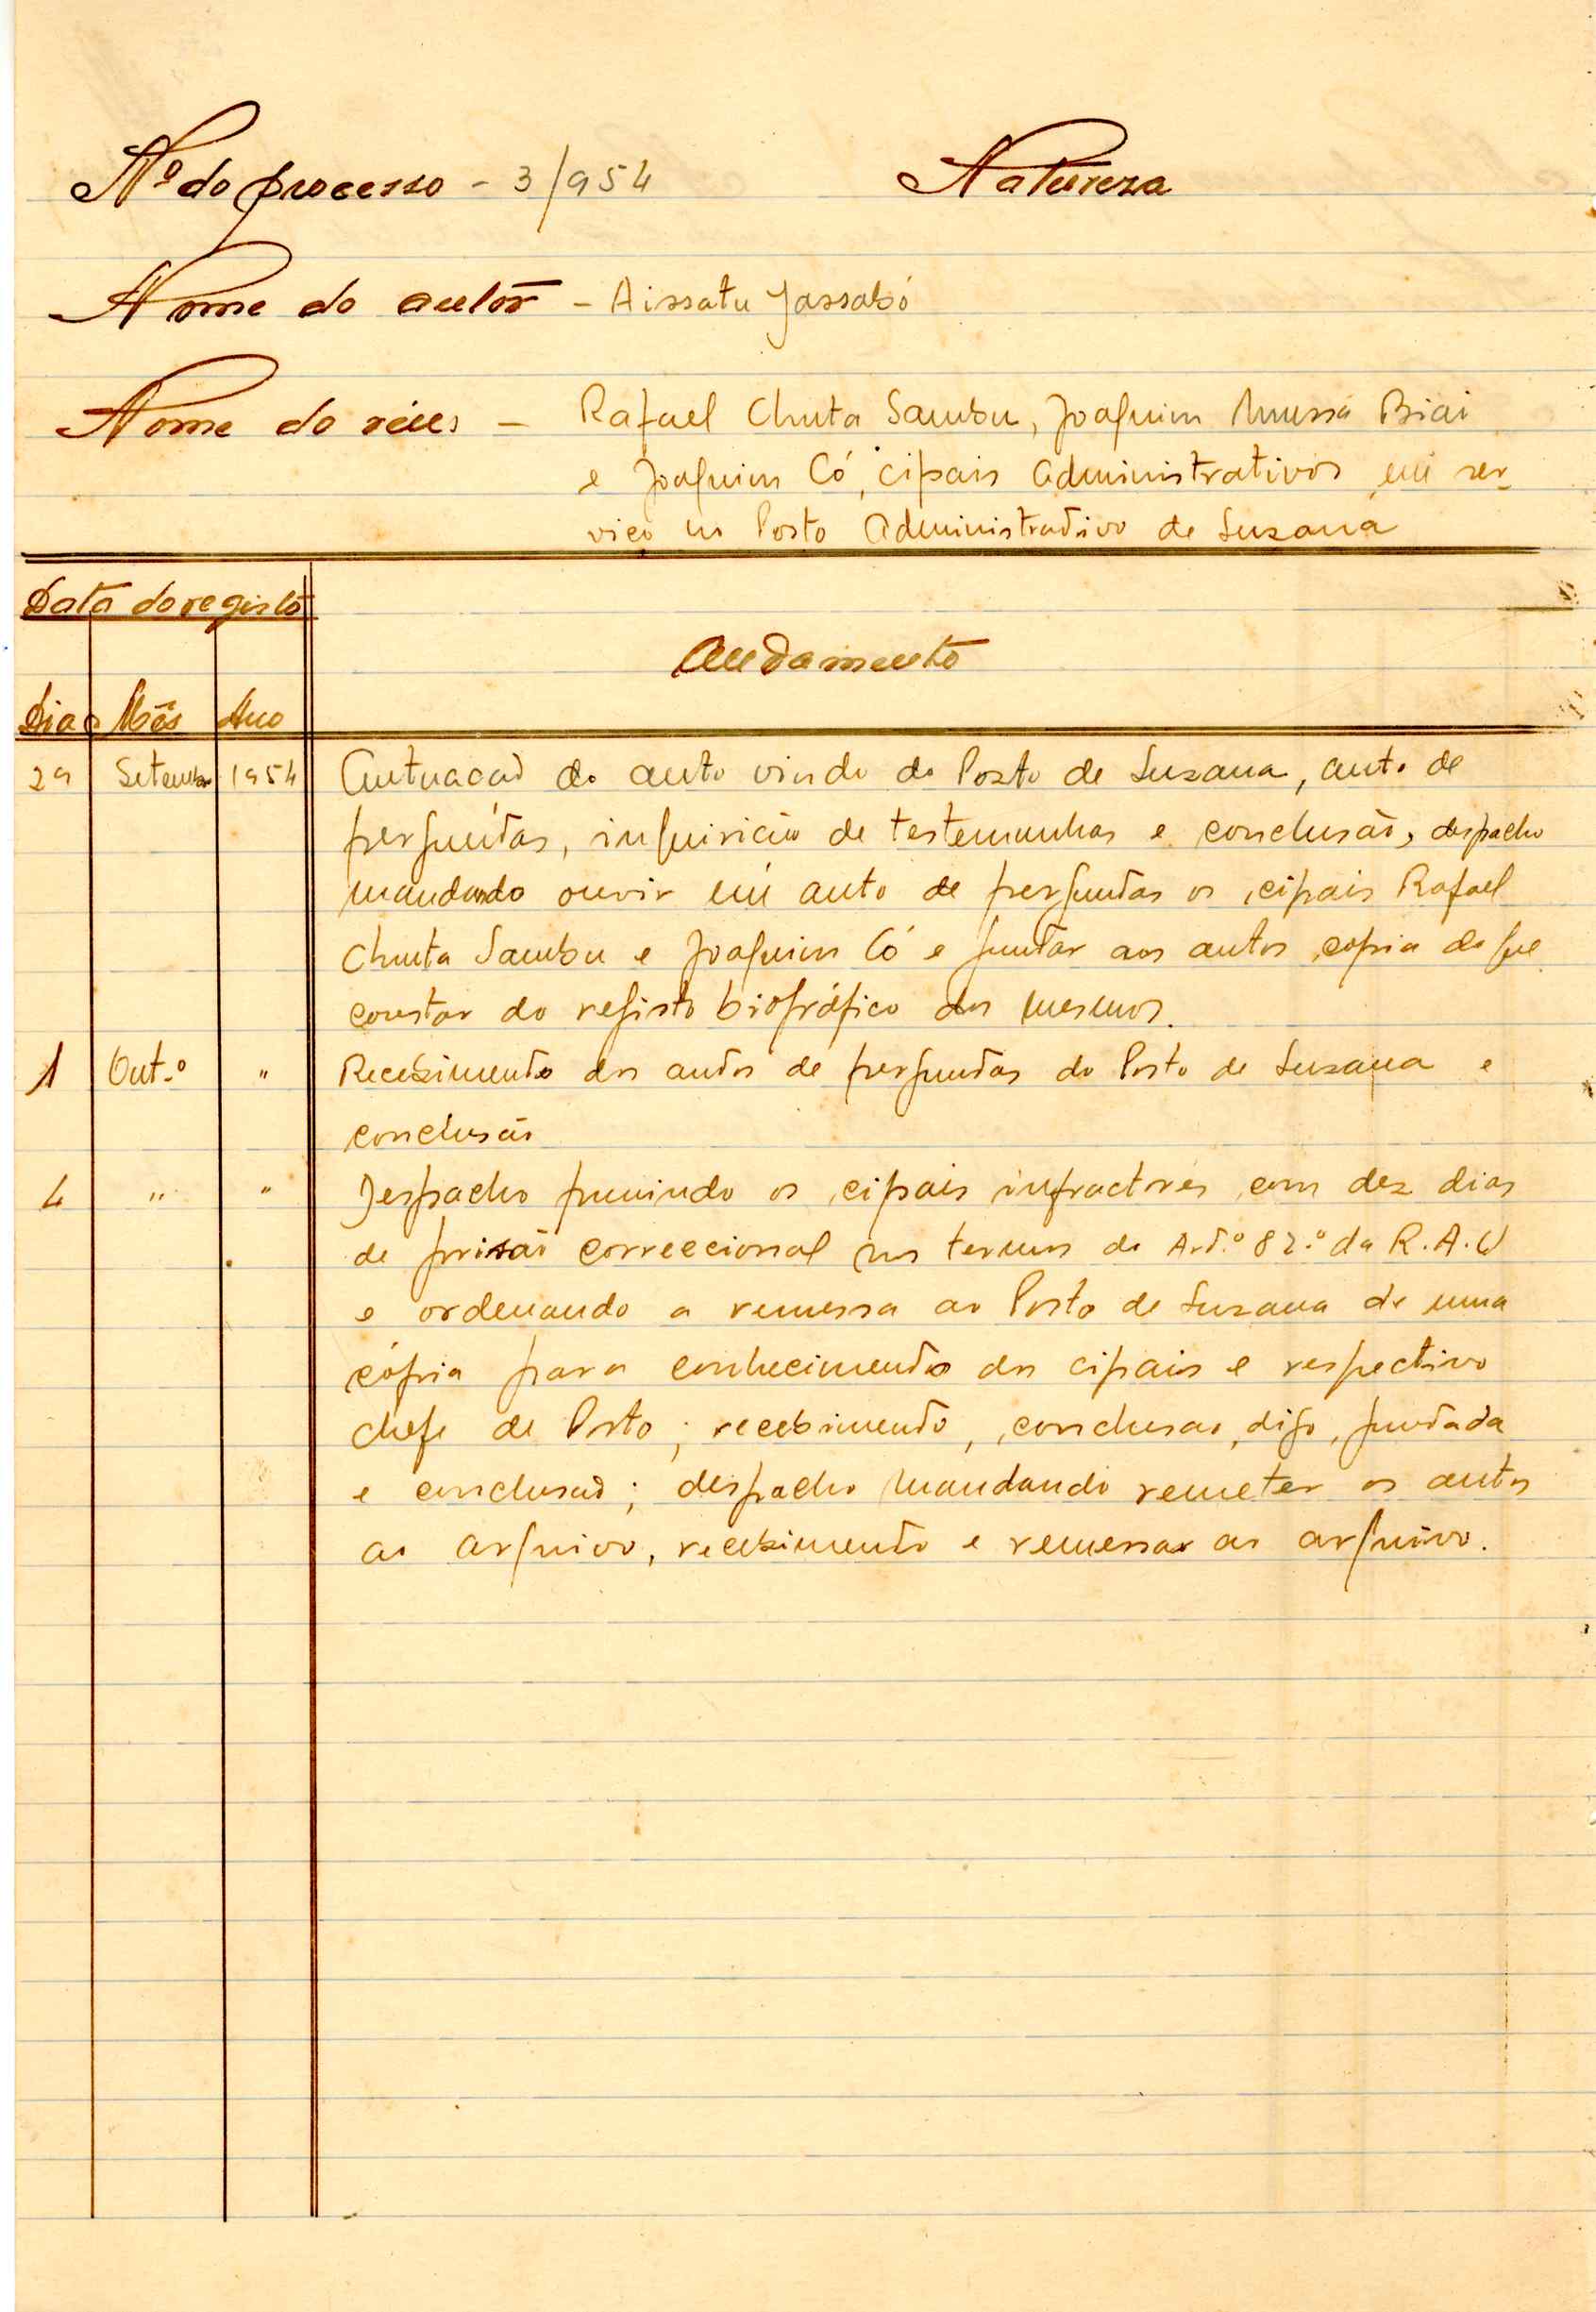 Nº do processo - 3/954 Natureza
Nome do autor - Aissatu Jassabó
Nome do réus - Rafael Chuta Sambu, Joaquim Mussá Biai
e Joaquim Có, cipais administrativos em ser-
viço no Posto Administrativo de Suzana
Data do registo
Andamento
Dia Mês Ano
29 Setembro 1954 Autuacão do auto vindo do Posto de Suzana, auto de
perguntas, inquirição de testemunhas e conclusão, despacho
mandando ouvir em auto de perguntas os cipais Rafael
Chuta Sambu e Joaquim Có e juntar aos autos copia do que
constar do registo biográfico dos mesmos.
1 Out.º " Recebimento dos autos de perguntas do Posto de Suzana e
conclusão
4 " " Despacho punindo os cipais infractores com dez dias
de prisão correccional nos termos do Art.º 82.º da R.A.U
e ordenando a remessa ao Posto de Suzana de uma
cópia para conhecimento dos cipais e respectivo
chefe de Posto; recebimento, conclusao, digo, juntada
e conclusão; despacho mandando remeter os autos
ao arquivo, recebimento e remessa ao arquivo.